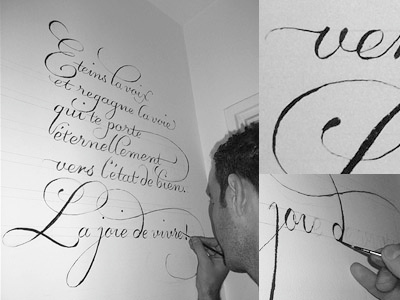 Eteins la voix
et regagne la voie
qui te porte
éternellement
vers l'état de bien.
La joie de vivre!
ver
L
joie d